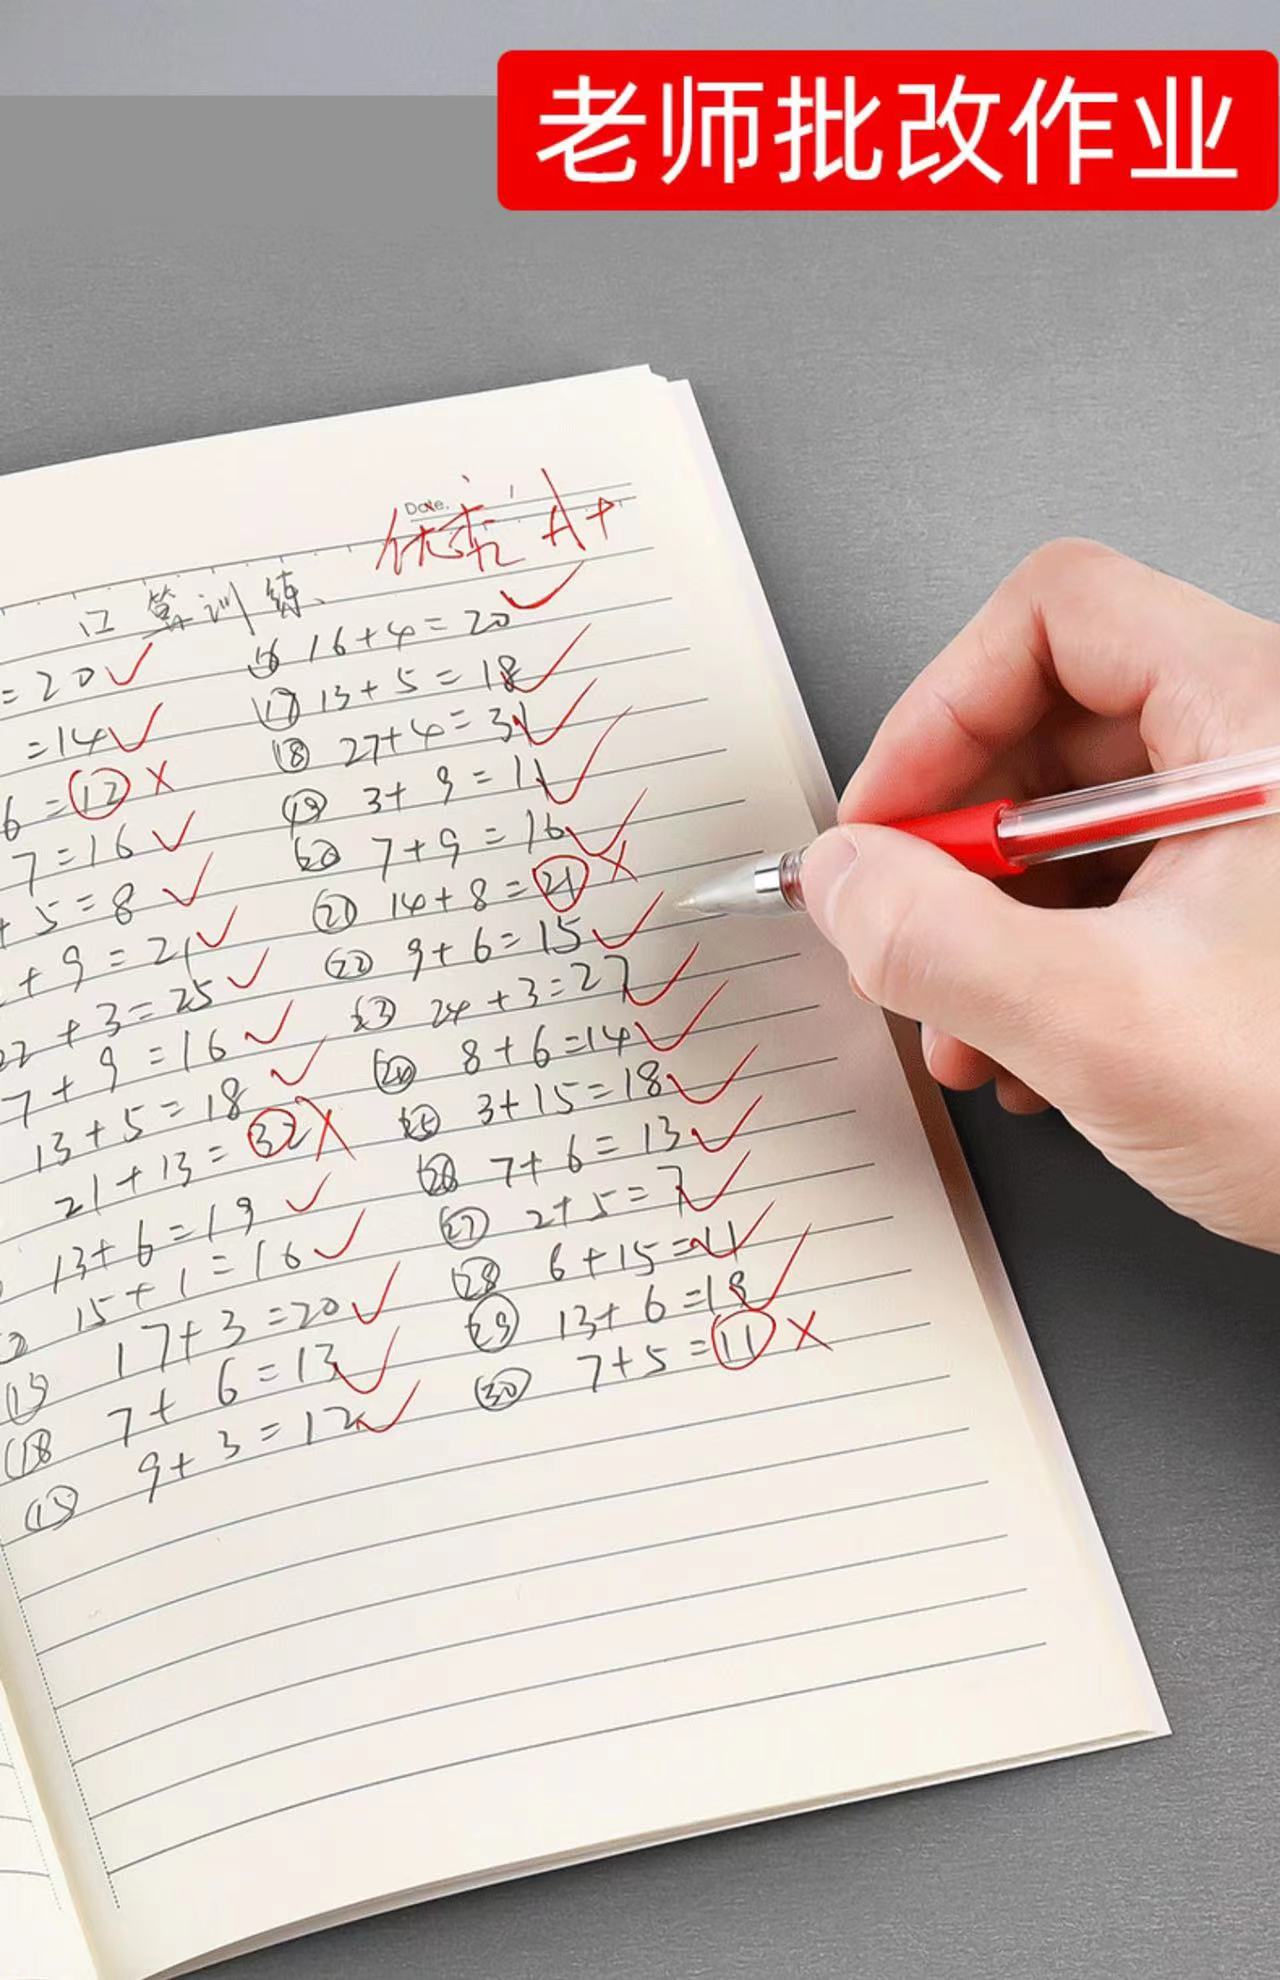 老师批改作业
Date.
优秀 A+
口算训练
= 20 ✓
= 14 ✓
6 = 12 ×
7 = 16 ✓
+ 5 = 8 ✓
+ 9 = 21 ✓
22 + 3 = 25 ✓
7 + 9 = 16 ✓
13 + 5 = 18 ✓
21 + 13 = 32 ×
13 + 6 = 19 ✓
15 + 1 = 16 ✓
⑬ 17 + 3 = 20 ✓
⑱ 7 + 6 = 13 ✓
⑮ 9 + 3 = 12 ✓
⑯ 16 + 4 = 20 ✓
⑰ 13 + 5 = 18 ✓
⑱ 27 + 4 = 31 ✓
⑲ 3 + 9 = 11 ✓
⑳ 7 + 9 = 16 ✓
㉑ 14 + 8 = 21 ×
㉒ 9 + 6 = 15 ✓
㉓ 24 + 3 = 27 ✓
㉔ 8 + 6 = 14 ✓
㉕ 3 + 15 = 18 ✓
㉖ 7 + 6 = 13 ✓
㉗ 2 + 5 = 7 ✓
㉘ 6 + 15 = 11 ✓
㉙ 13 + 6 = 19 ✓
㉚ 7 + 5 = 11 ×